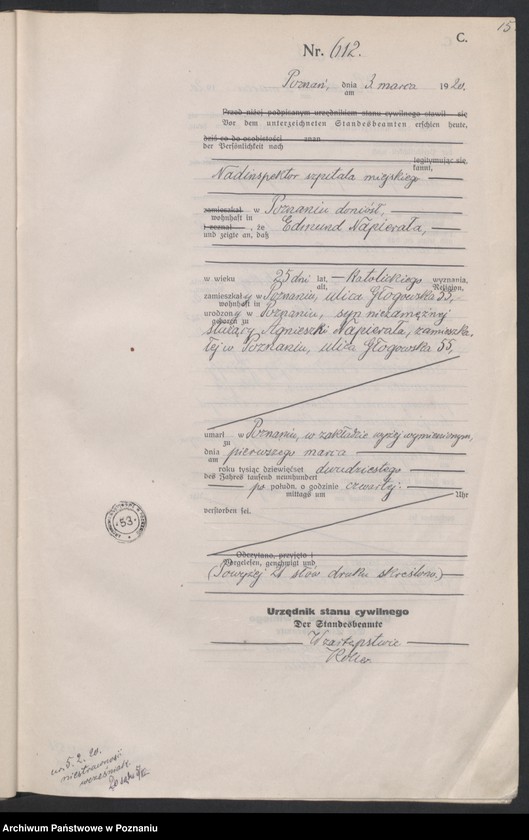 15
C.
Nr. 612.
Poznań, dnia 3 marca 1920.
am
Przed niżej podpisanym urzędnikiem stanu cywilnego stawił się
Vor dem unterzeichneten Standesbeamten erschien heute,
dziś co do osobistości znan
der Persönlichkeit nach
legitymując się
kannt,
Nadinspektor szpitala miejskiego
zamieszkał w Poznaniu doniósł,
wohnhaft in
i zeznał, że Edmund Napierała,
und zeigte an, daß
w wieku 25 dni lat, katolickiego wyznania,
alt, Religion,
zamieszkały w Poznaniu, ulica Głogowska 55,
wohnhaft in
urodzony w Poznaniu, syn niezamężnej
geboren zu
służący Agnieszki Napierała, zamieszka-
łej w Poznaniu, ulica Głogowska 55,
umarł w Poznaniu, w zakładzie wyżej wymienionym,
zu
dnia pierwszego marca
am
roku tysiąc dziewięćset dwudziestego
des Jahres tausend neunhundert
po połudn. o godzinie czwartej.
mittags um Uhr
verstorben sei.
53
Odczytano, przyjęto i
Vorgelesen, genehmigt und
(Powyżej 21 słów druku skreślono.)
Urzędnik stanu cywilnego
Der Standesbeamte
W zastępstwie
ur. 5. 2. 20.
niestrawność
Archiwum Państwowe w Poznaniu